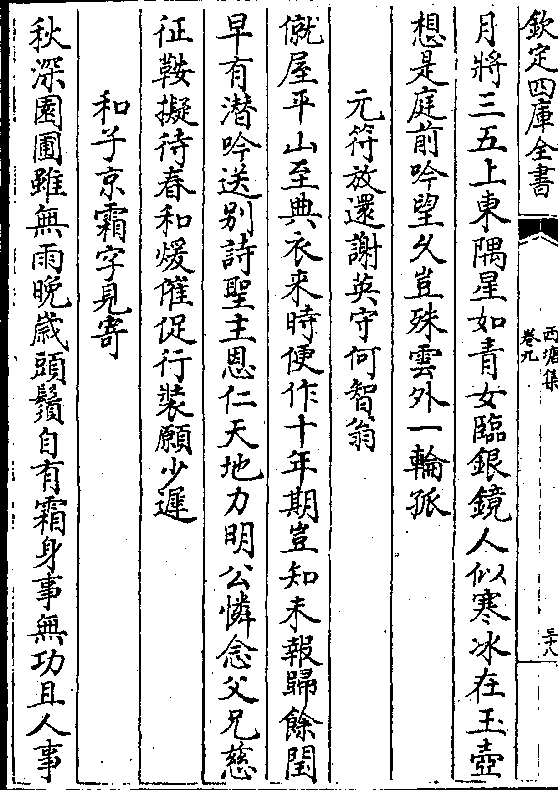 欽定四庫全書
西塘集
卷九
三十八
月將三五上東隅星如青女臨銀鏡人似寒冰在玉壺
想是庭前吟望久豈殊雲外一輪孤
元符放還謝英守何智翁
僦屋平山至典衣来時便作十年期豈知未報歸餘閏
早有潛吟送别詩聖主恩仁天地力明公憐念父兄慈
征鞍擬待春和煖催促行裝願少遲
和子京霜字見寄
秋深園圃雖無雨晚歲頭鬚自有霜身事無功且人事